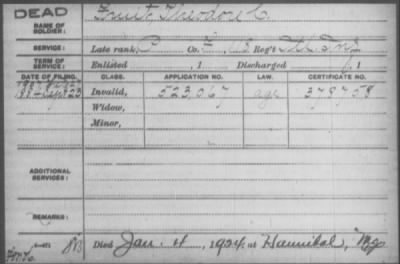 DEAD
NAME OF SOLDIER:
Fruit, Theodore C.
SERVICE: Late rank, Co. Reg't Inf
TERM OF SERVICE: Enlisted , 1 Discharged , 1
DATE OF FILING. CLASS. APPLICATION NO. LAW. CERTIFICATE NO.
Invalid, 523,067 age 378758
Widow,
Minor,
ADDITIONAL SERVICES:
REMARKS:
Died Jan. 4, 1924, at Hannibal, Mo